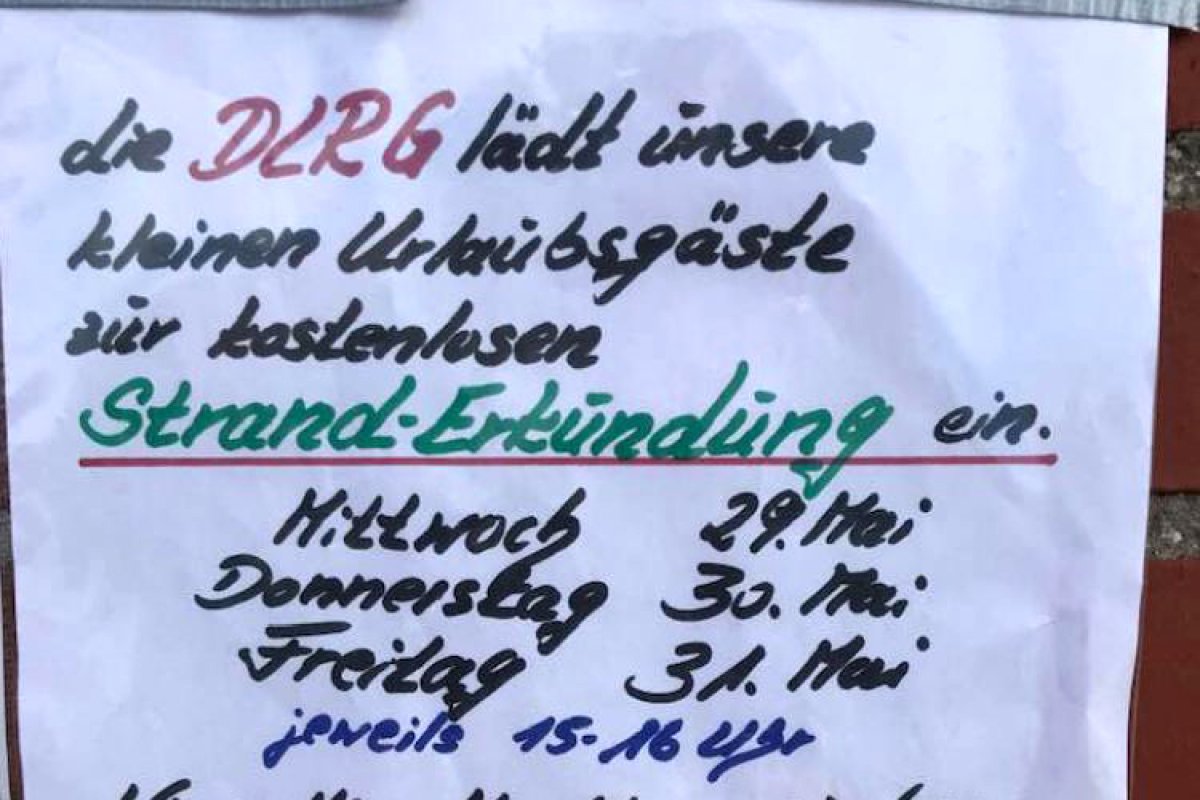 die DLRG lädt unsere
kleinen Urlaubsgäste
zur kostenlosen
Strand-Erkundung ein.
Mittwoch 29. Mai
Donnerstag 30. Mai
Freitag 31. Mai
jeweils 15-16 Uhr